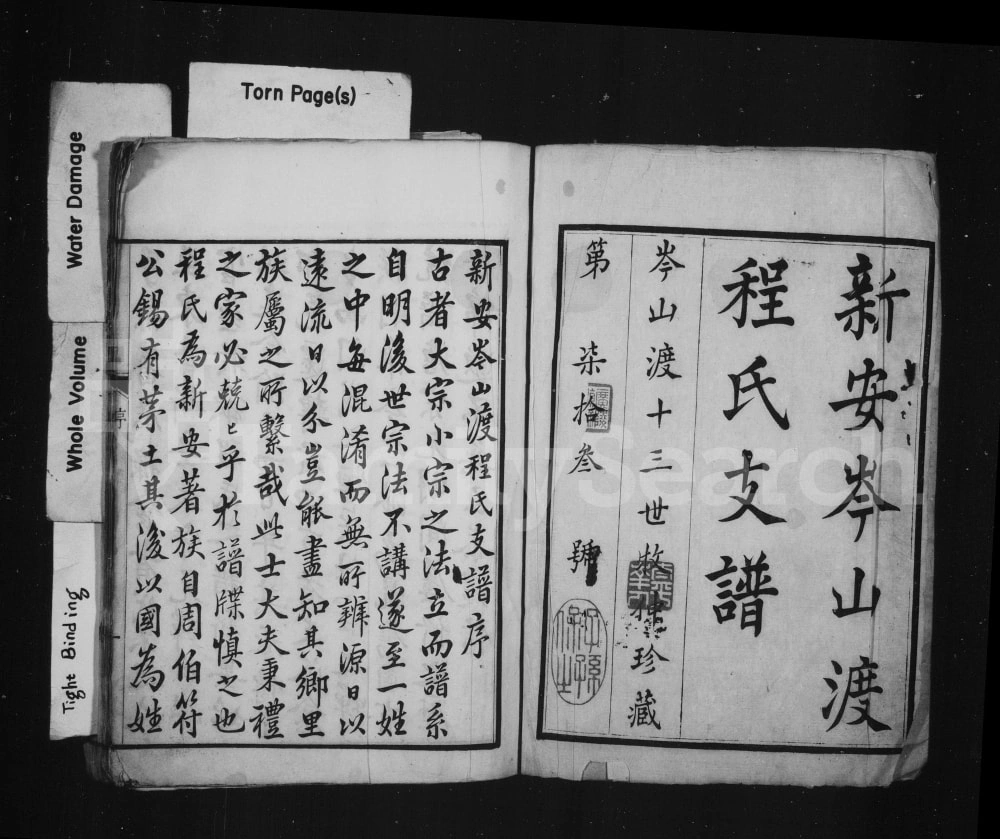 Torn Page(s)
Water Damage
Whole Volume
Tight Binding
新安岑山渡
程氏支譜
岑山渡十三世珍藏
第柒拾叁號
新安岑山渡程氏支譜序
古者大宗小宗之法立而譜系
自明後世宗法不講遂至一姓
之中每混淆而無所辨源日以
遠流日以分豈能盡知其鄉里
族屬之所繫哉此士大夫秉禮
之家必兢〻乎於譜牒慎之也
程氏為新安著族自周伯符
公錫有茅土其後以國為姓
序